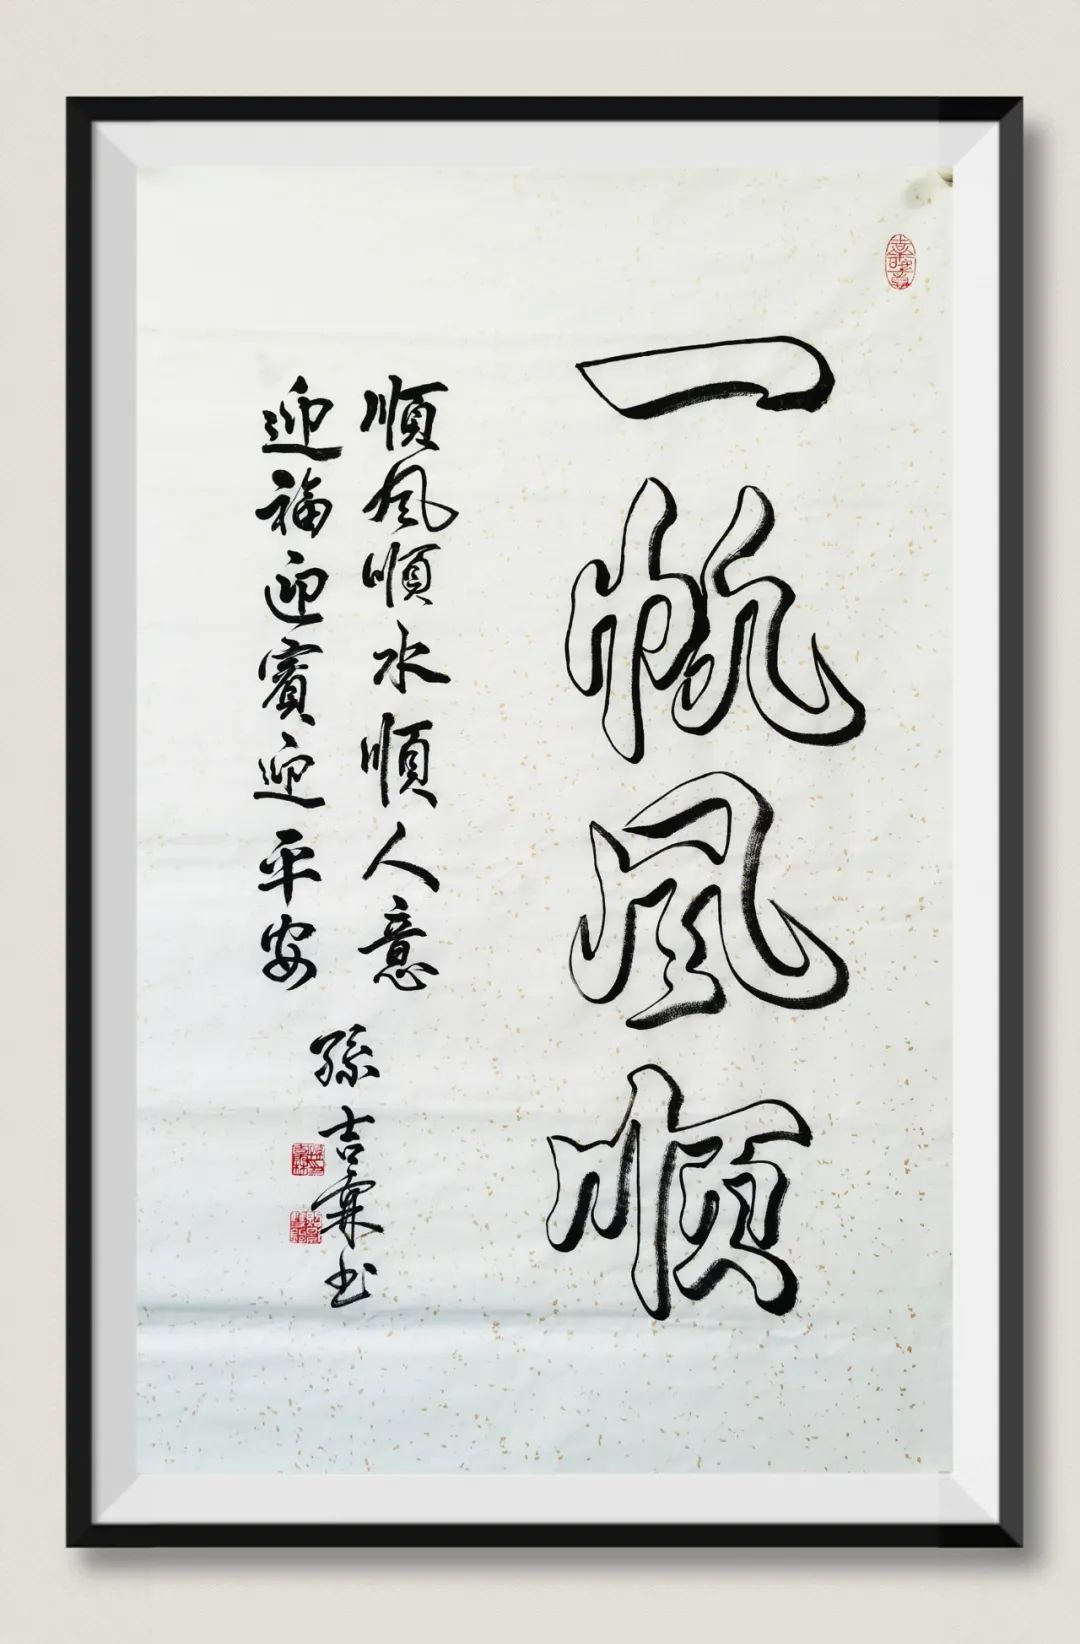 一帆风顺
順風順水順人意
迎福迎賓迎平安
孫吉霖书